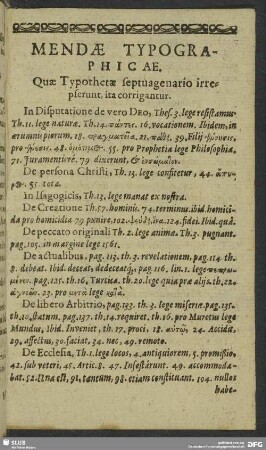 MENDÆ TYPOGRA-
PHICAE.
Quæ Typothetæ septuagenario irre-
pserunt, ita corrigantur.
In Disputatione de vero DEO, Thes. 3. lege resistamus
Th. 11. lege naturæ. Th. 14. 16. vocationem. Ibidem, in
ærumnis piorum. 18. 21. 39. Filij
pro 48. 55. pro Prophetia lege Philosophia,
71. Juramentive. 79 dixerunt, &
De persona Christi, Th. 13. lege confitetur, 44.
55. tota.
In Isagogicis, Th. 13. lege manat ex nostra.
De Creatione Th. 57. hominis. 74. terminus. ibid. homici-
da pro homicidio 79 punire. 102. 124. fidei. Ibid. quâ.
De peccato originali Th. 2. lege anima. Th. 3. pugnant.
pag. 105. in margine lege 1561.
De actualibus, pag. 113. th. 3. revelationem. pag. 114. th.
8. debeat. Ibid. deceat, dedeceatq;, pag 116, lin. 1. lege
pag. 125. th. 16, Turcica. th. 20. lege quia præ alijs. th. 22.
23. pro lege
De libero Arbitrio, pag. 133. th. 3. lege miseriæ. pag. 135.
th. 10. statum, pag. 137. th. 14. requiret. th. 16. pro Muretus lege
Mundus, Ibid. Inveniet, th. 17. proci. 18. 24. Accidæ,
29, affectus, 30. faciat, 34. nec, 49. remoto.
De Ecclesia, Th. 1. lege locos, 4. antiquiorem. 5. promissio,
42. sub veteri, 45. Artic. 8. 47. Infestârunt. 49. accommoda-
bat. 52. est, 91, tantum; 98. etiam constituant, 104. nullos
habe-
SLUB
Wir führen Wissen.
DFG